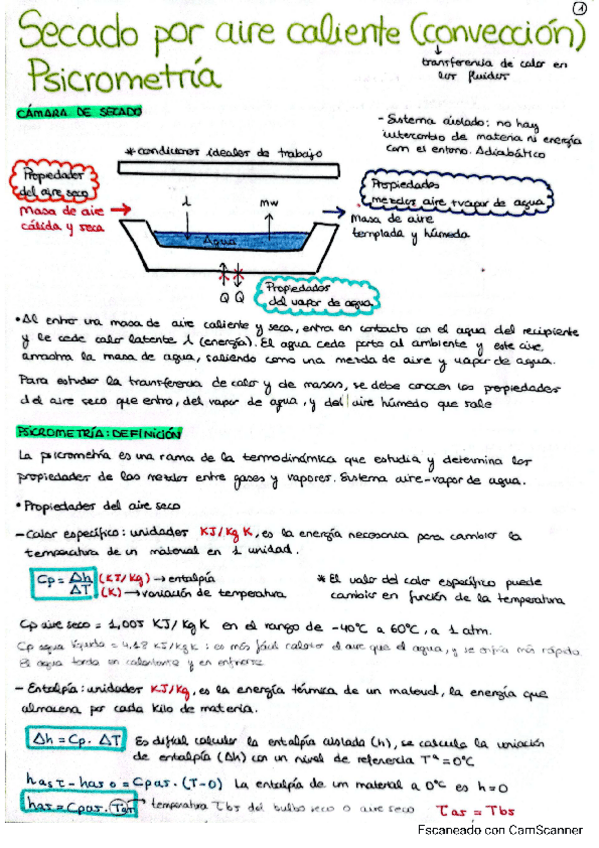 1
Secado por aire caliente (convección)
transferencia de calor en
los fluidos
Psicrometría
CÁMARA DE SECADO
- Sistema aislado: no hay
intercambio de materia ni energía
con el entorno. Adiabático
* condiciones ideales de trabajo
Propiedades
del aire seco
Masa de aire
cálida y seca
λ
mw
Agua
Propiedades
mezclas aire + vapor de agua
Masa de aire
templada y húmeda
Q Q
Propiedades
del vapor de agua
• Al entrar una masa de aire caliente y seca, entra en contacto con el agua del recipiente
y le cede calor latente λ (energía). El agua cede parte al ambiente y este aire,
arrastra la masa de agua, saliendo como una mezcla de aire y vapor de agua.
Para estudiar la transferencia de calor y de masas, se debe conocer las propiedades
del aire seco que entra, del vapor de agua, y del aire húmedo que sale
PSICROMETRÍA: DEFINICIÓN
La psicrometría es una rama de la termodinámica que estudia y determina las
propiedades de las mezclas entre gases y vapores. Sistema aire-vapor de agua.
• Propiedades del aire seco
- Calor específico: unidades KJ/Kg K, es la energía necesaria para cambiar la
temperatura de un material en 1 unidad.
Cp = Δh/ΔT (KJ/Kg) → entalpía
(K) → variación de temperatura
* El valor del calor específico puede
cambiar en función de la temperatura
Cp aire seco = 1,005 KJ/Kg K en el rango de -40°C a 60°C, a 1 atm.
Cp agua líquida = 4,18 KJ/Kg K: es más fácil calentar el aire que el agua, y se enfría más rápido.
El agua tarda en calentarse y en enfriarse
- Entalpía: unidades KJ/Kg, es la energía térmica de un material, la energía que
almacena por cada kilo de materia.
Δh = Cp · ΔT
Es difícil calcular la entalpía aislada (h), se calcula la variación
de entalpía (Δh) con un nivel de referencia Tª = 0°C
has T - has 0 = Cpas · (T-0) La entalpía de un material a 0°C es h=0
has = Cpas · Tas → temperatura Tbs del bulbo seco o aire seco Tas = Tbs
Escaneado con CamScanner